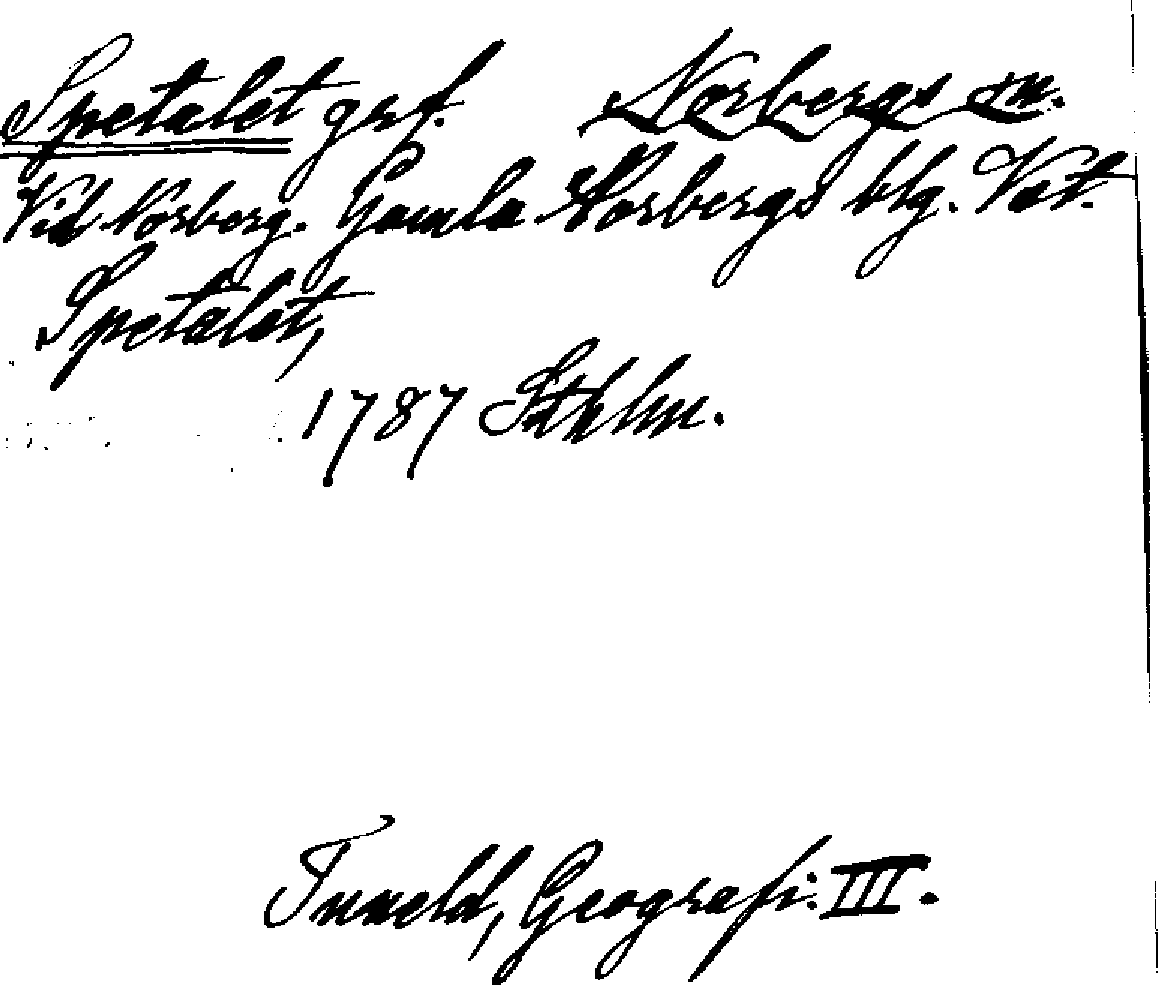 Spetalet grf. Norbergs sn.
Vid Norberg. Gamla Norbergs blg. Vst.
Spetalet,
1787 Sthlm.
Tuneld, Geografi. III.